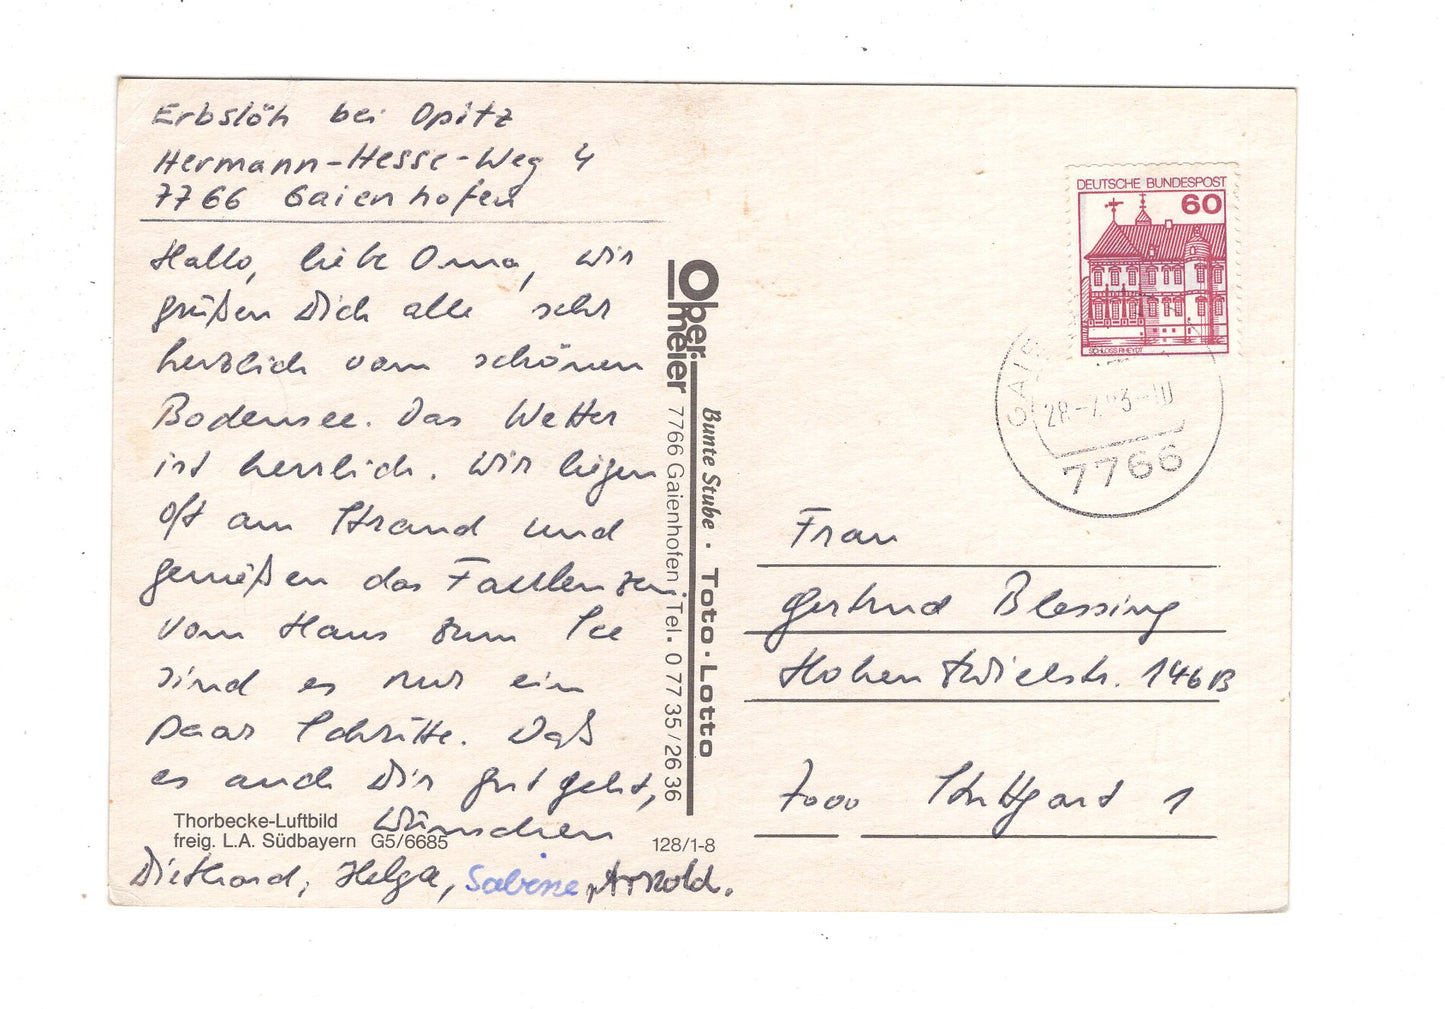 Erbslöh bei Opitz
Hermann-Hesse-Weg 4
7766 Gaienhofen
Hallo, liebe Oma, wir
grüßen Dich alle sehr
herzlich vom schönen
Bodensee. Das Wetter
ist herrlich. Wir liegen
oft am Strand und
genießen das Faulenzen.
Vom Haus zum See
sind es nur ein
paar Schritte. Daß
es auch Dir gut geht,
wünschen
Diethard, Helga, Sabine, Arnold.
Thorbecke-Luftbild
freig. L.A. Südbayern G5/6685
128/1-8
Obermeier
7766 Gaienhofen · Tel. 0 77 35 / 26 36
Bunte Stube · Toto · Lotto
DEUTSCHE BUNDESPOST
60
SCHLOSS RHEYDT
GAIE
28.-7.83-10
7766
Frau
Gertrud Blessing
Hohentwielstr. 146B
7000 Stuttgart 1